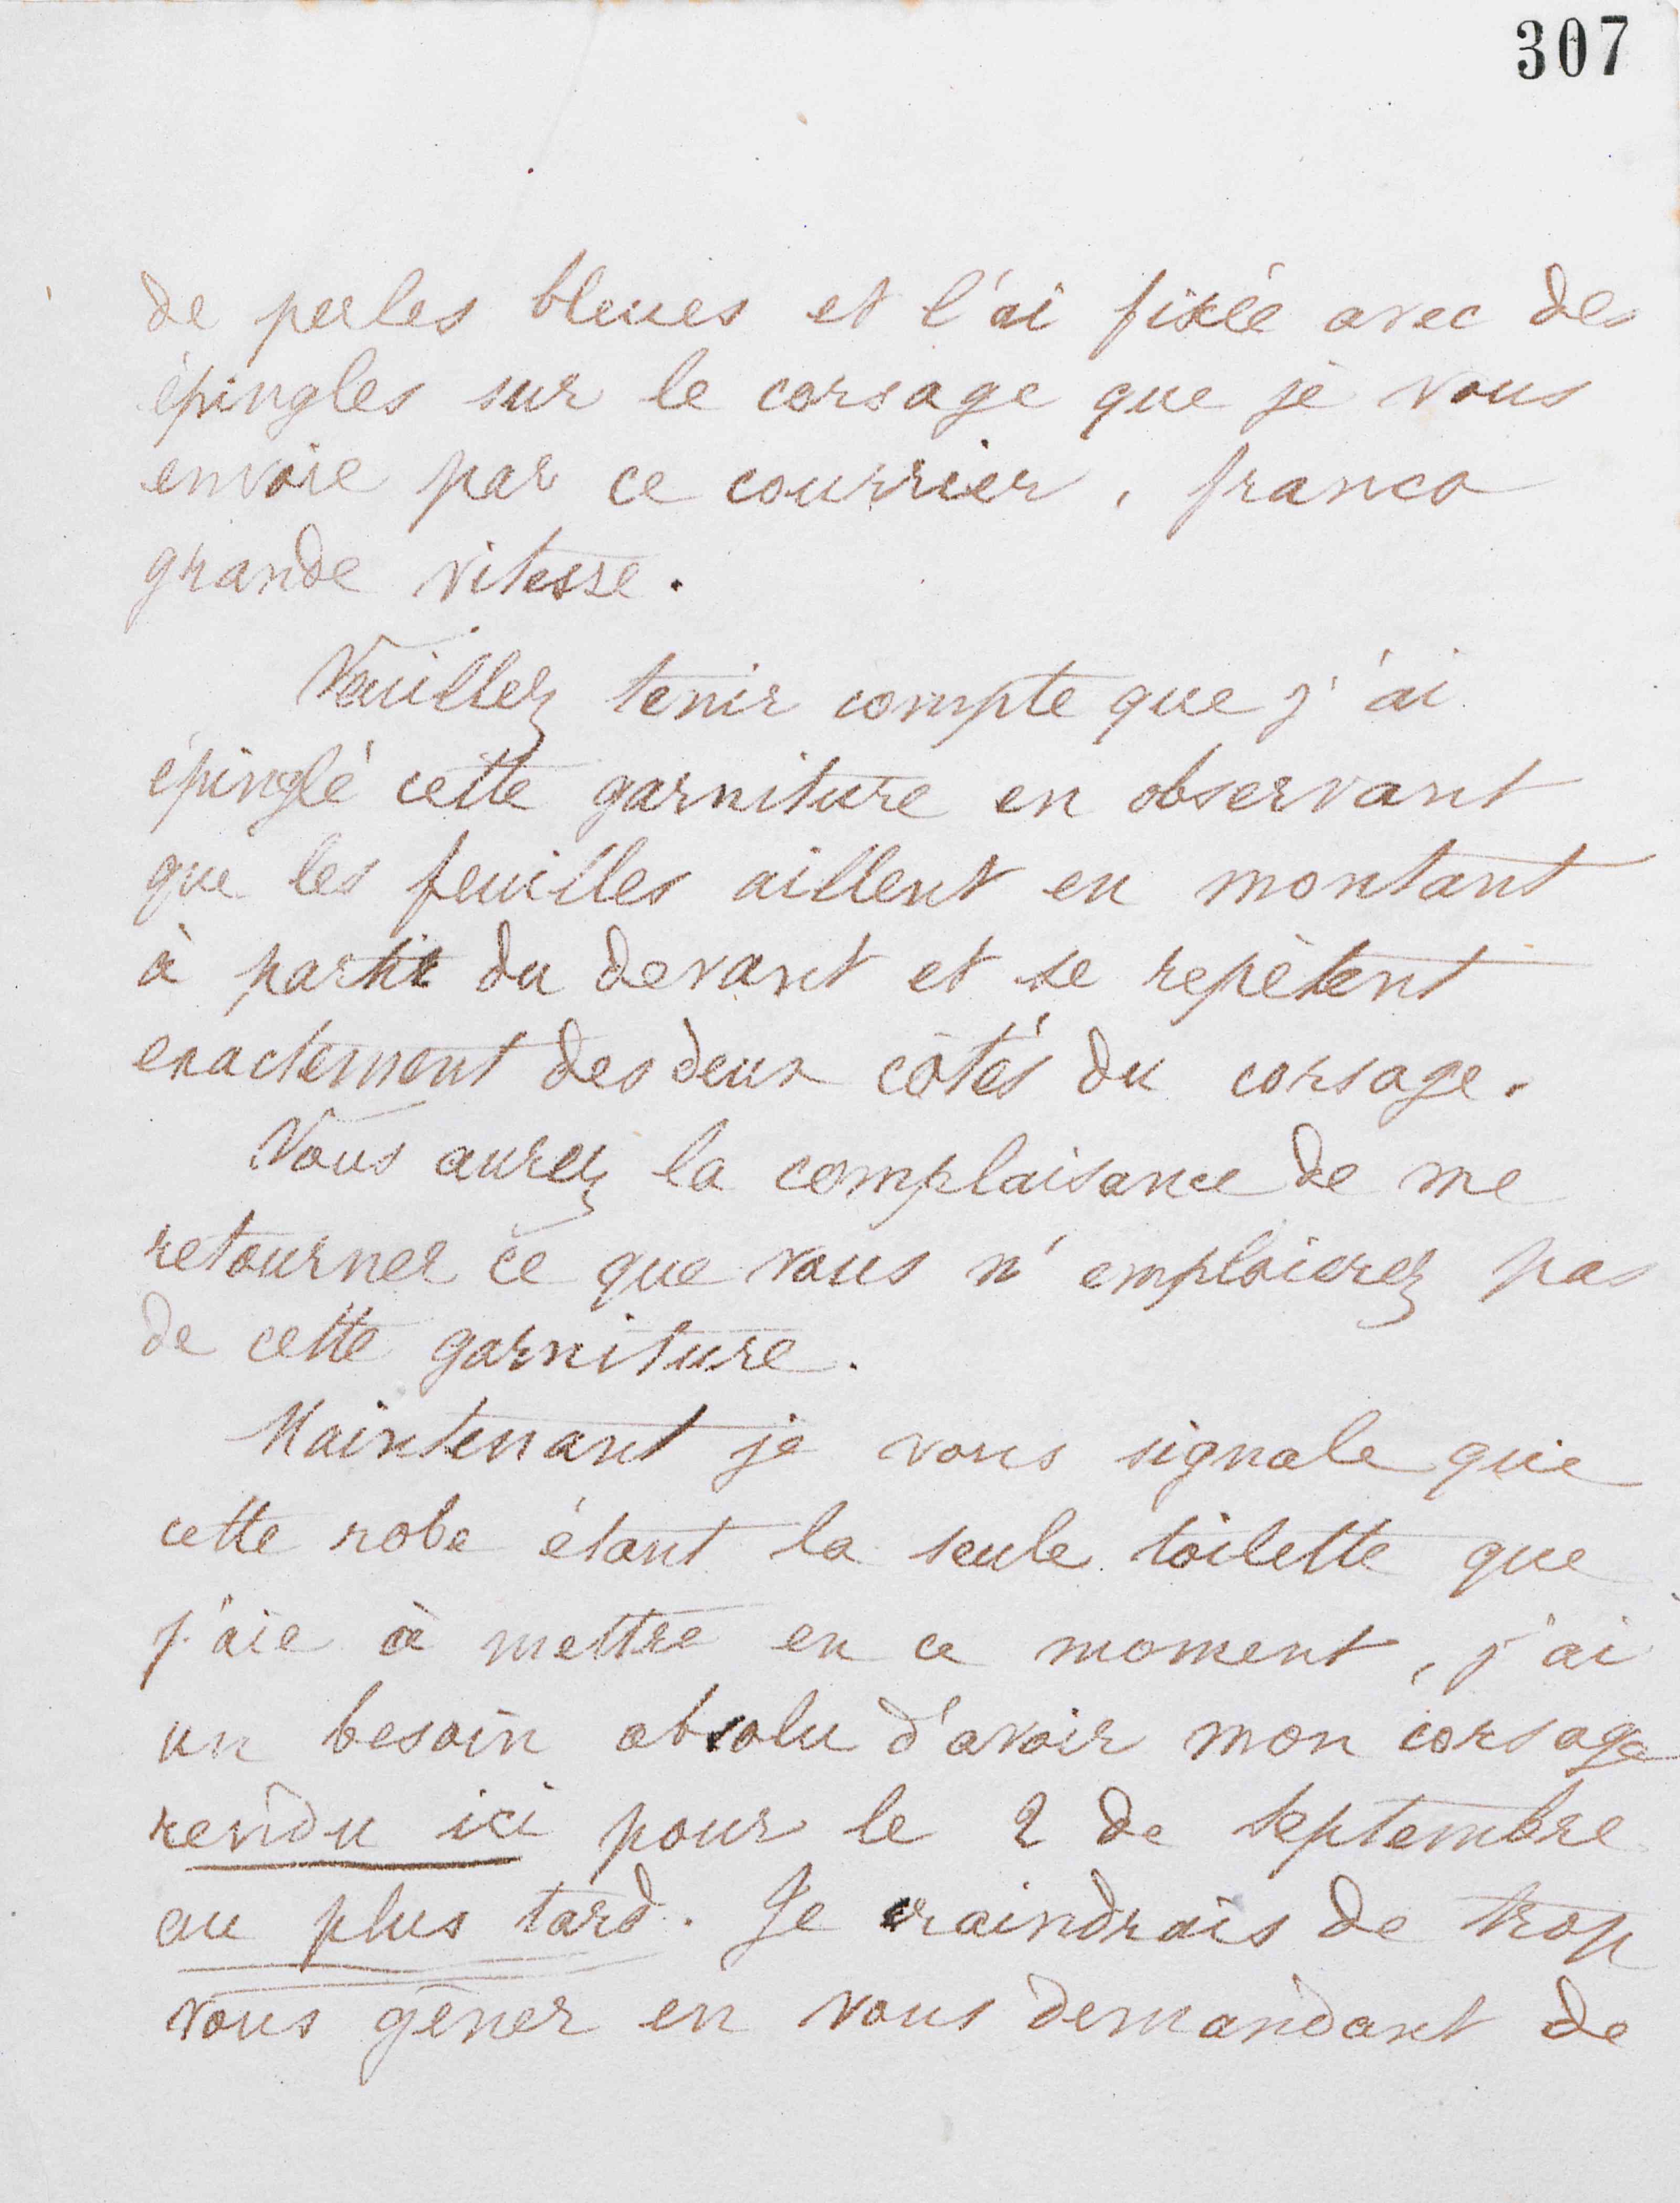 307
de perles bleues et l'ai fixée avec des
épingles sur le corsage que je vous
envoie par ce courrier, franco
grande vitesse.
Veuillez tenir compte que j'ai
épinglé cette garniture en observant
que les feuilles aillent en montant
à partir du devant et se repètent
exactement des deux côtés du corsage.
Vous aurez la complaisance de me
retourner ce que vous n'emploierez pas
de cette garniture.
Maintenant je vous signale que
cette robe étant la seule toilette que
j'aie à mettre en ce moment, j'ai
un besoin absolu d'avoir mon corsage
rendu ici pour le 2 de septembre
au plus tard. Je craindrais de trop
vous gêner en vous demandant de